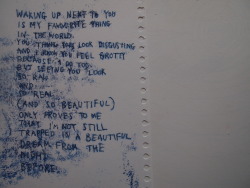 WAKING UP NEXT TO YOU
IS MY FAVOURITE THING
IN THE WORLD.
YOU THINK YOU LOOK DISGUSTING
AND I KNOW YOU FEEL GROTTY
BECAUSE I DO TOO.
BUT SEEING YOU LOOK
SO RAW
AND
SO REAL
(AND SO BEAUTIFUL)
ONLY PROVES TO ME
THAT I'M NOT STILL
TRAPPED IN A BEAUTIFUL
DREAM FROM THE
NIGHT
BEFORE.